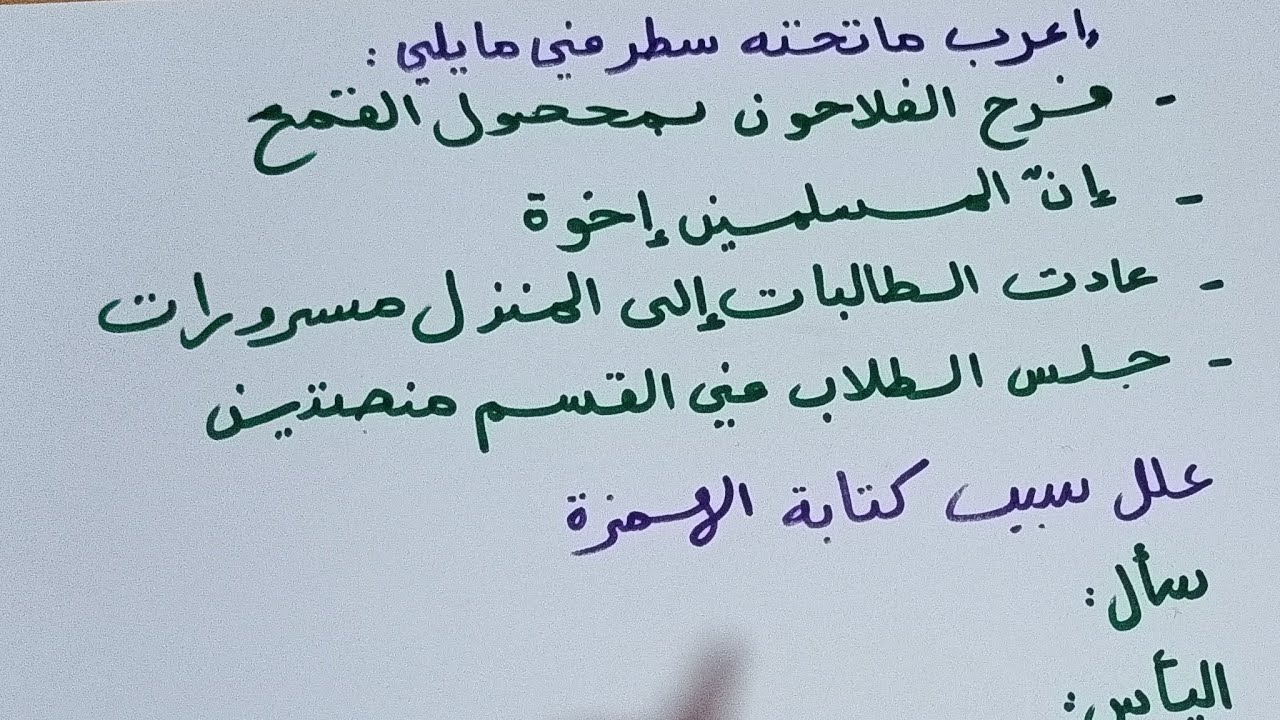 إعرب ماتحته سطر في مايلي :
- فرح الفلاحون بمحصول القمح
- إنّ المسلمين إخوة
- عادت الطالبات إلى المنزل مسرورات
- جلس الطلاب في القسم منصتين
علل سبب كتابة الهمزة
سأل :
اليأس :